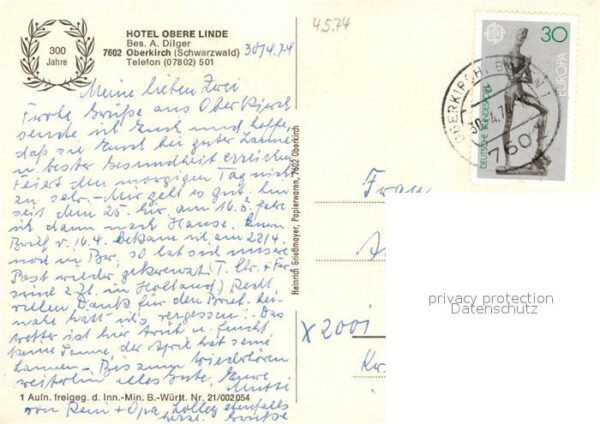 HOTEL OBERE LINDE
Bes. A. Dilger
7602 Oberkirch (Schwarzwald)
Telefon (07802) 501
300
Jahre
30/4.74
4.5.74
Meine lieben Zwei
Frohe Grüße aus Oberkirch
sende ich Euch und hoffe,
daß sie Euch bei guter Laune
in bester Gesundheit erreichen
Feiert den morgigen Tag nicht
zu sehr. – Mir geht es gut. bin
seit dem 25. hier, am 16.5. fahre
ich dann nach Hause. Euren
Brief v. 16.4. bekam ich am 22/4.
noch in so hat sich unsere
Post wieder gekreuzt.
sind z.Zt. in Holland) Recht
vielen Dank für den Brief. bei-
nahe hätt ich's vergessen! Das
Wetter ist hier u. feucht,
keine Sonne, der April hat seine
Launen. – Bis zum Wiederhören
weiterhin alles Gute, Eure
Mutti
von + Opa, ebenfalls
herzl. Grüße
1 Aufn. freigeg. d. Inn.-Min. B.-Württ. Nr. 21/002 054
Heinrich Grießmayer, Papierwaren, 7602 Oberkirch
30
EUROPA
DEUTSCHE BUNDESPOST
OBERKIRCH
760
Frau
X 2001
privacy protection
Datenschutz